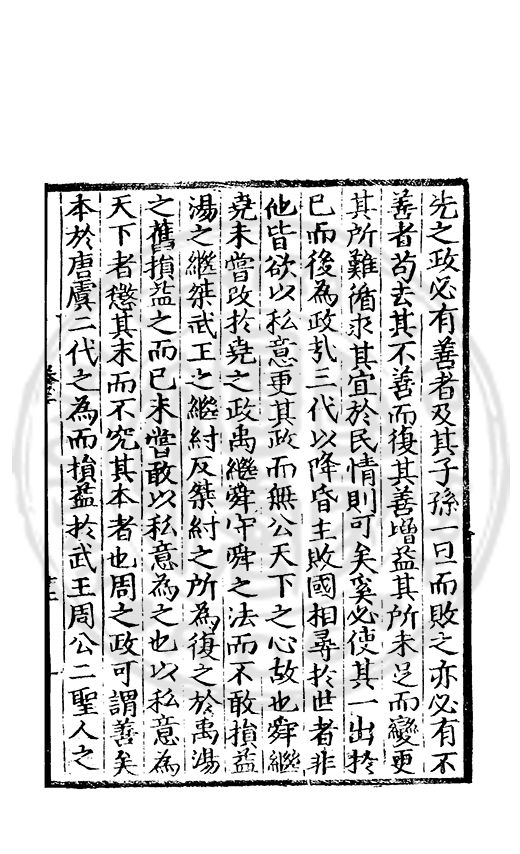 先之政必有善者及其子孫一旦而敗之亦必有不
善者苟去其不善而復其善增益其所未足而變更
其所難循求其宜於民情則可矣奚必使其一出於
已而後為政哉三代以降昏主敗國相尋於世者非
他皆欲以私意更其政而無公天下之心故也舜繼
堯未嘗改於堯之政禹繼舜守舜之法而不敢損益
湯之繼桀武王之繼紂反桀紂之所為復之於禹湯
之舊損益之而已未嘗敢以私意為之也以私意為
天下者懲其末而不究其本者也周之政可謂善矣
本於唐虞二代之為而損益於武王周公二聖人之
卷三